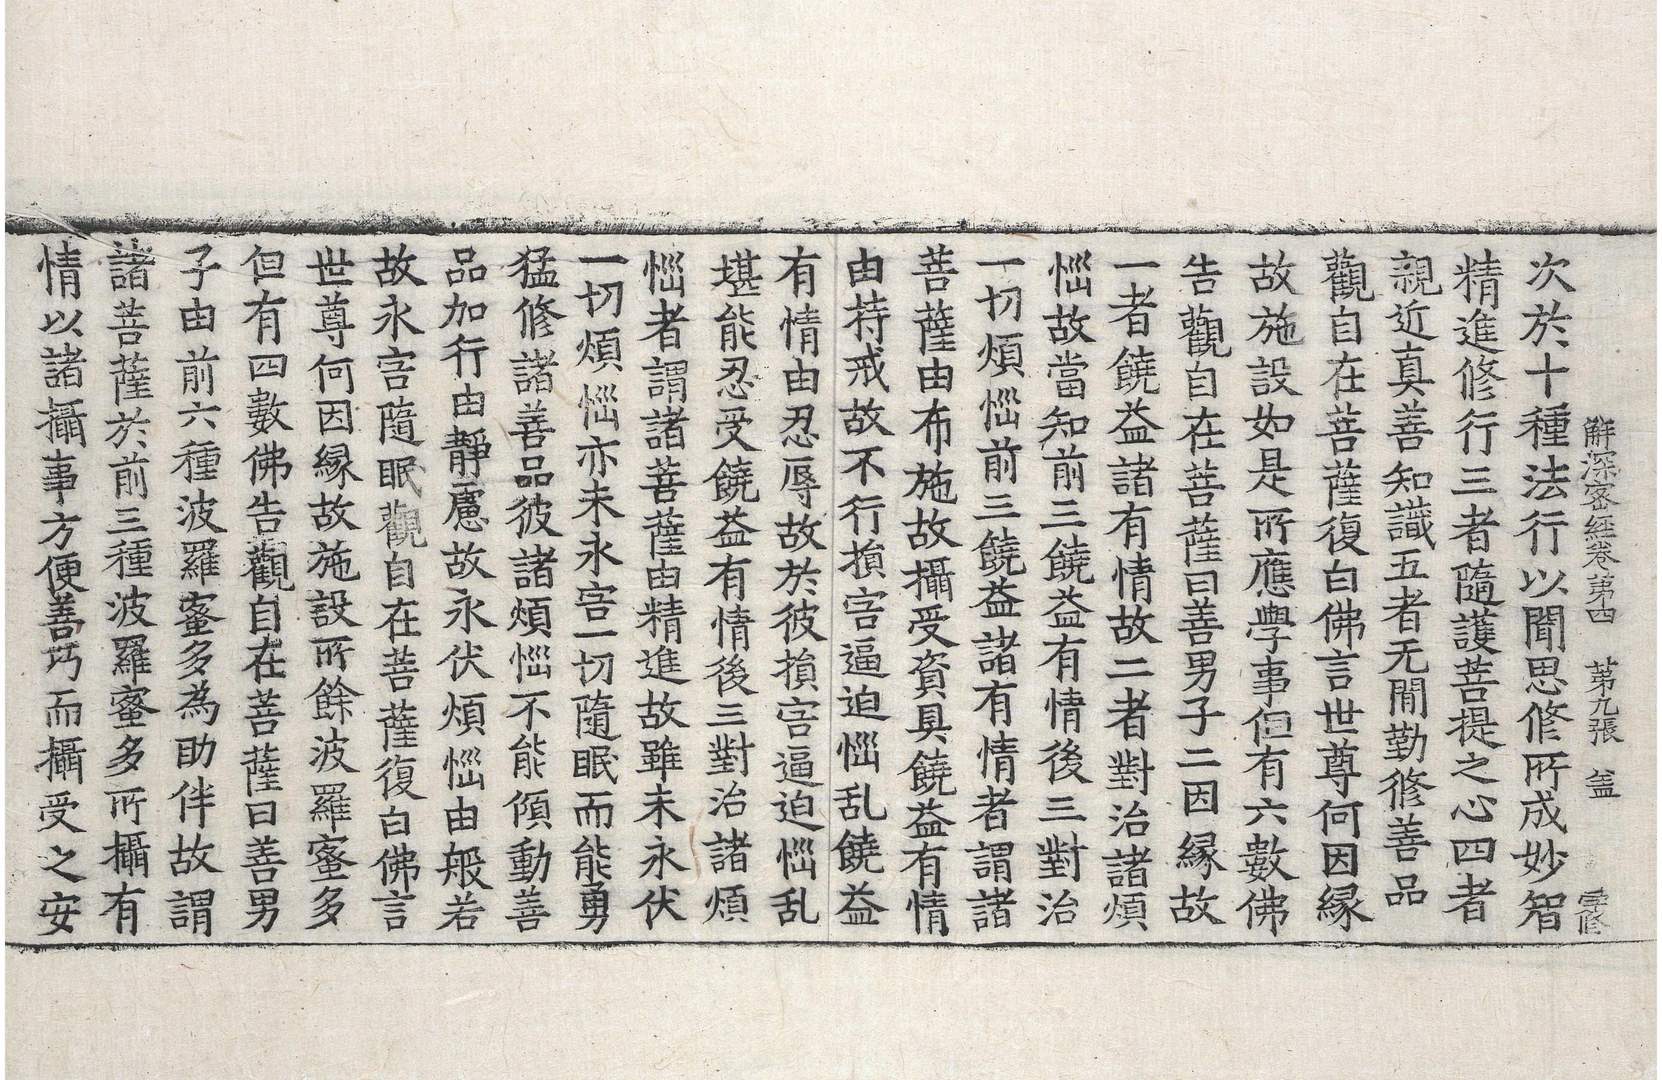 解深密經卷第四　第九張　盖　字修
次於十種法行以聞思修所成妙智
精進修行三者隨護菩提之心四者
親近真善知識五者无閒勤修善品
觀自在菩薩復白佛言世尊何因縁
故施設如是所應學事但有六數佛
告觀自在菩薩曰善男子二因縁故
一者饒益諸有情故二者對治諸煩
惱故當知前三饒益有情後三對治
一切煩惱前三饒益諸有情者謂諸
菩薩由布施故攝受資具饒益有情
由持戒故不行損害逼迫惱乱饒益
有情由忍辱故於彼損害逼迫惱乱
堪能忍受饒益有情後三對治諸煩
惱者謂諸菩薩由精進故雖未永伏
一切煩惱亦未永害一切隨眠而能勇
猛修諸善品彼諸煩惱不能傾動善
品加行由靜慮故永伏煩惱由般若
故永害隨眠觀自在菩薩復白佛言
世尊何因縁故施設所餘波羅蜜多
但有四數佛告觀自在菩薩曰善男
子由前六種波羅蜜多為助伴故謂
諸菩薩於前三種波羅蜜多所攝有
情以諸攝事方便善巧而攝受之安